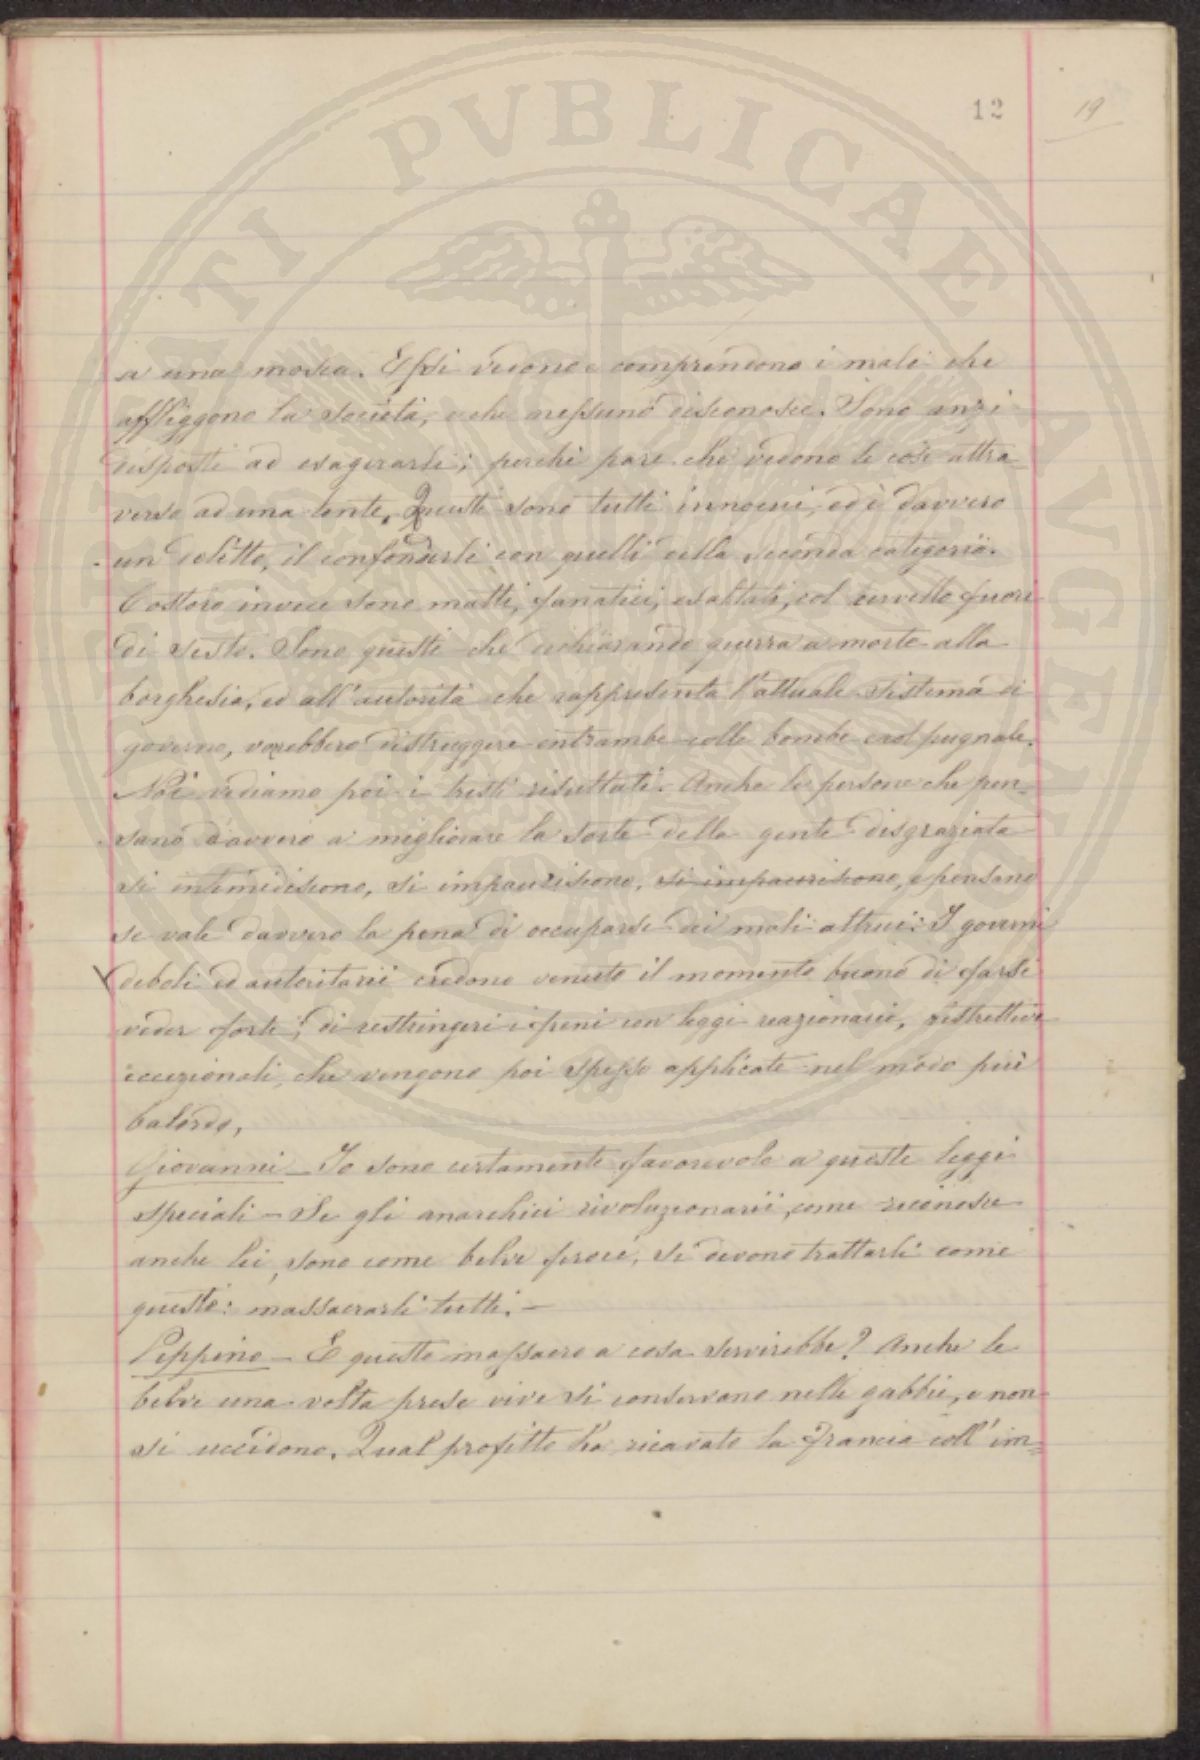 12
19
a una mosca. Essi vedono e comprendono i mali che
affliggono la società, e che nessuno disconosce. Sono anzi
disposti ad esagerarli; perchè pare che vedono le cose attra-
verso ad una lente. Questi sono tutti innocui, ed è davvero
un delitto, il confonderli con quelli della seconda categoria.
Costoro invece sono matti, fanatici, esaltati, col cervello fuori
di sesto. Sono questi che dichiarando guerra a morte alla
borghesia, ed all'autorità che rappresenta l'attuale sistema di
governo, vorebbero distruggere entrambe colle bombe e col pugnale.
Noi vediamo poi i tristi risultati. Anche le persone che pen-
sano davvero a migliorare la sorte della gente disgraziata
si intimidiscono, si impauriscono, si impauriscono, e pensano
se vale davvero la pena di occuparsi dei mali altrui: I governi
deboli ed autoritarii credono venuto il momento buono di farsi
veder forti; di restringere i freni con leggi reazionarie, restrittive
eccezionali, che vengono poi spesso applicate nel modo più
balordo.
Giovanni - Io sono certamente favorevole a queste leggi
speciali - Se gli anarchici rivoluzionarii, come riconosce
anche lei, sono come belve feroci, si devono trattarli come
queste: massacrarli tutti. -
Peppino - E questo massacro a cosa servirebbe? Anche le
belve una volta prese vive si conservano nelle gabbie, e non
si uccidono. Qual profitto ha ricavato la Francia coll'im=
PVBLICAE